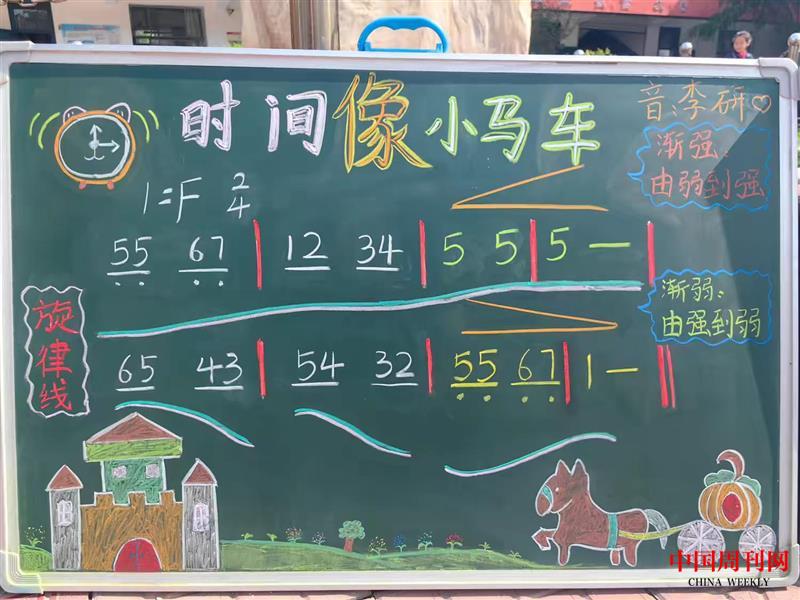 时间像小马车
音:李研
渐强:
由弱到强
1=F 2/4
55 67 | 12 34 | 5 5 | 5 — |
渐弱:
由强到弱
旋律线
65 43 | 54 32 | 55 67 | 1 — ‖
中国周刊网
CHINA WEEKLY